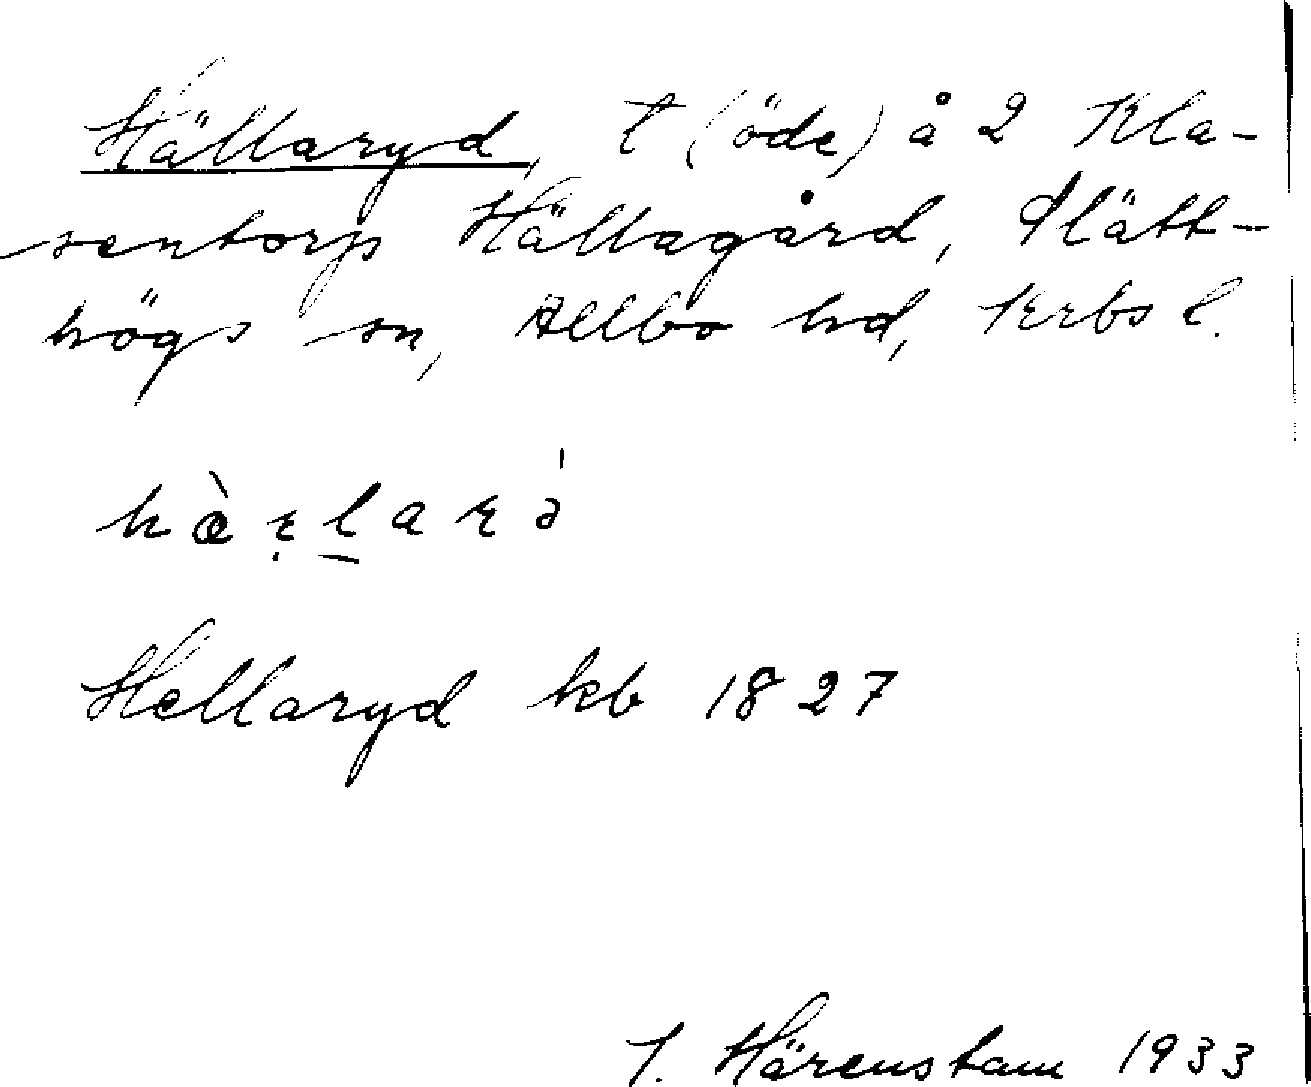 Hällaryd, t (öde) å 2 Kla-
sentorp Hällagård, Slätt-
högs sn, Allbo hd, Krbs l.
hæ̀ɽl̠aɽə́
Hellaryd kb 1827
I. Härenstam 1933